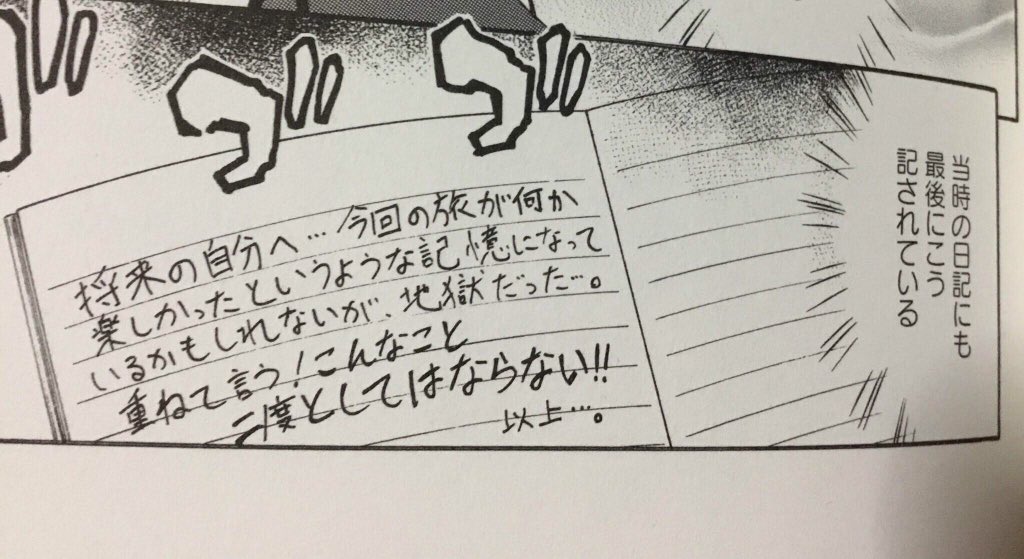 当時の日記にも
最後にこう
記されている
将来の自分へ…今回の旅が何か
楽しかったというような記憶になって
いるかもしれないが、地獄だった…。
重ねて言う!こんなこと
二度としてはならない!!
以上…。